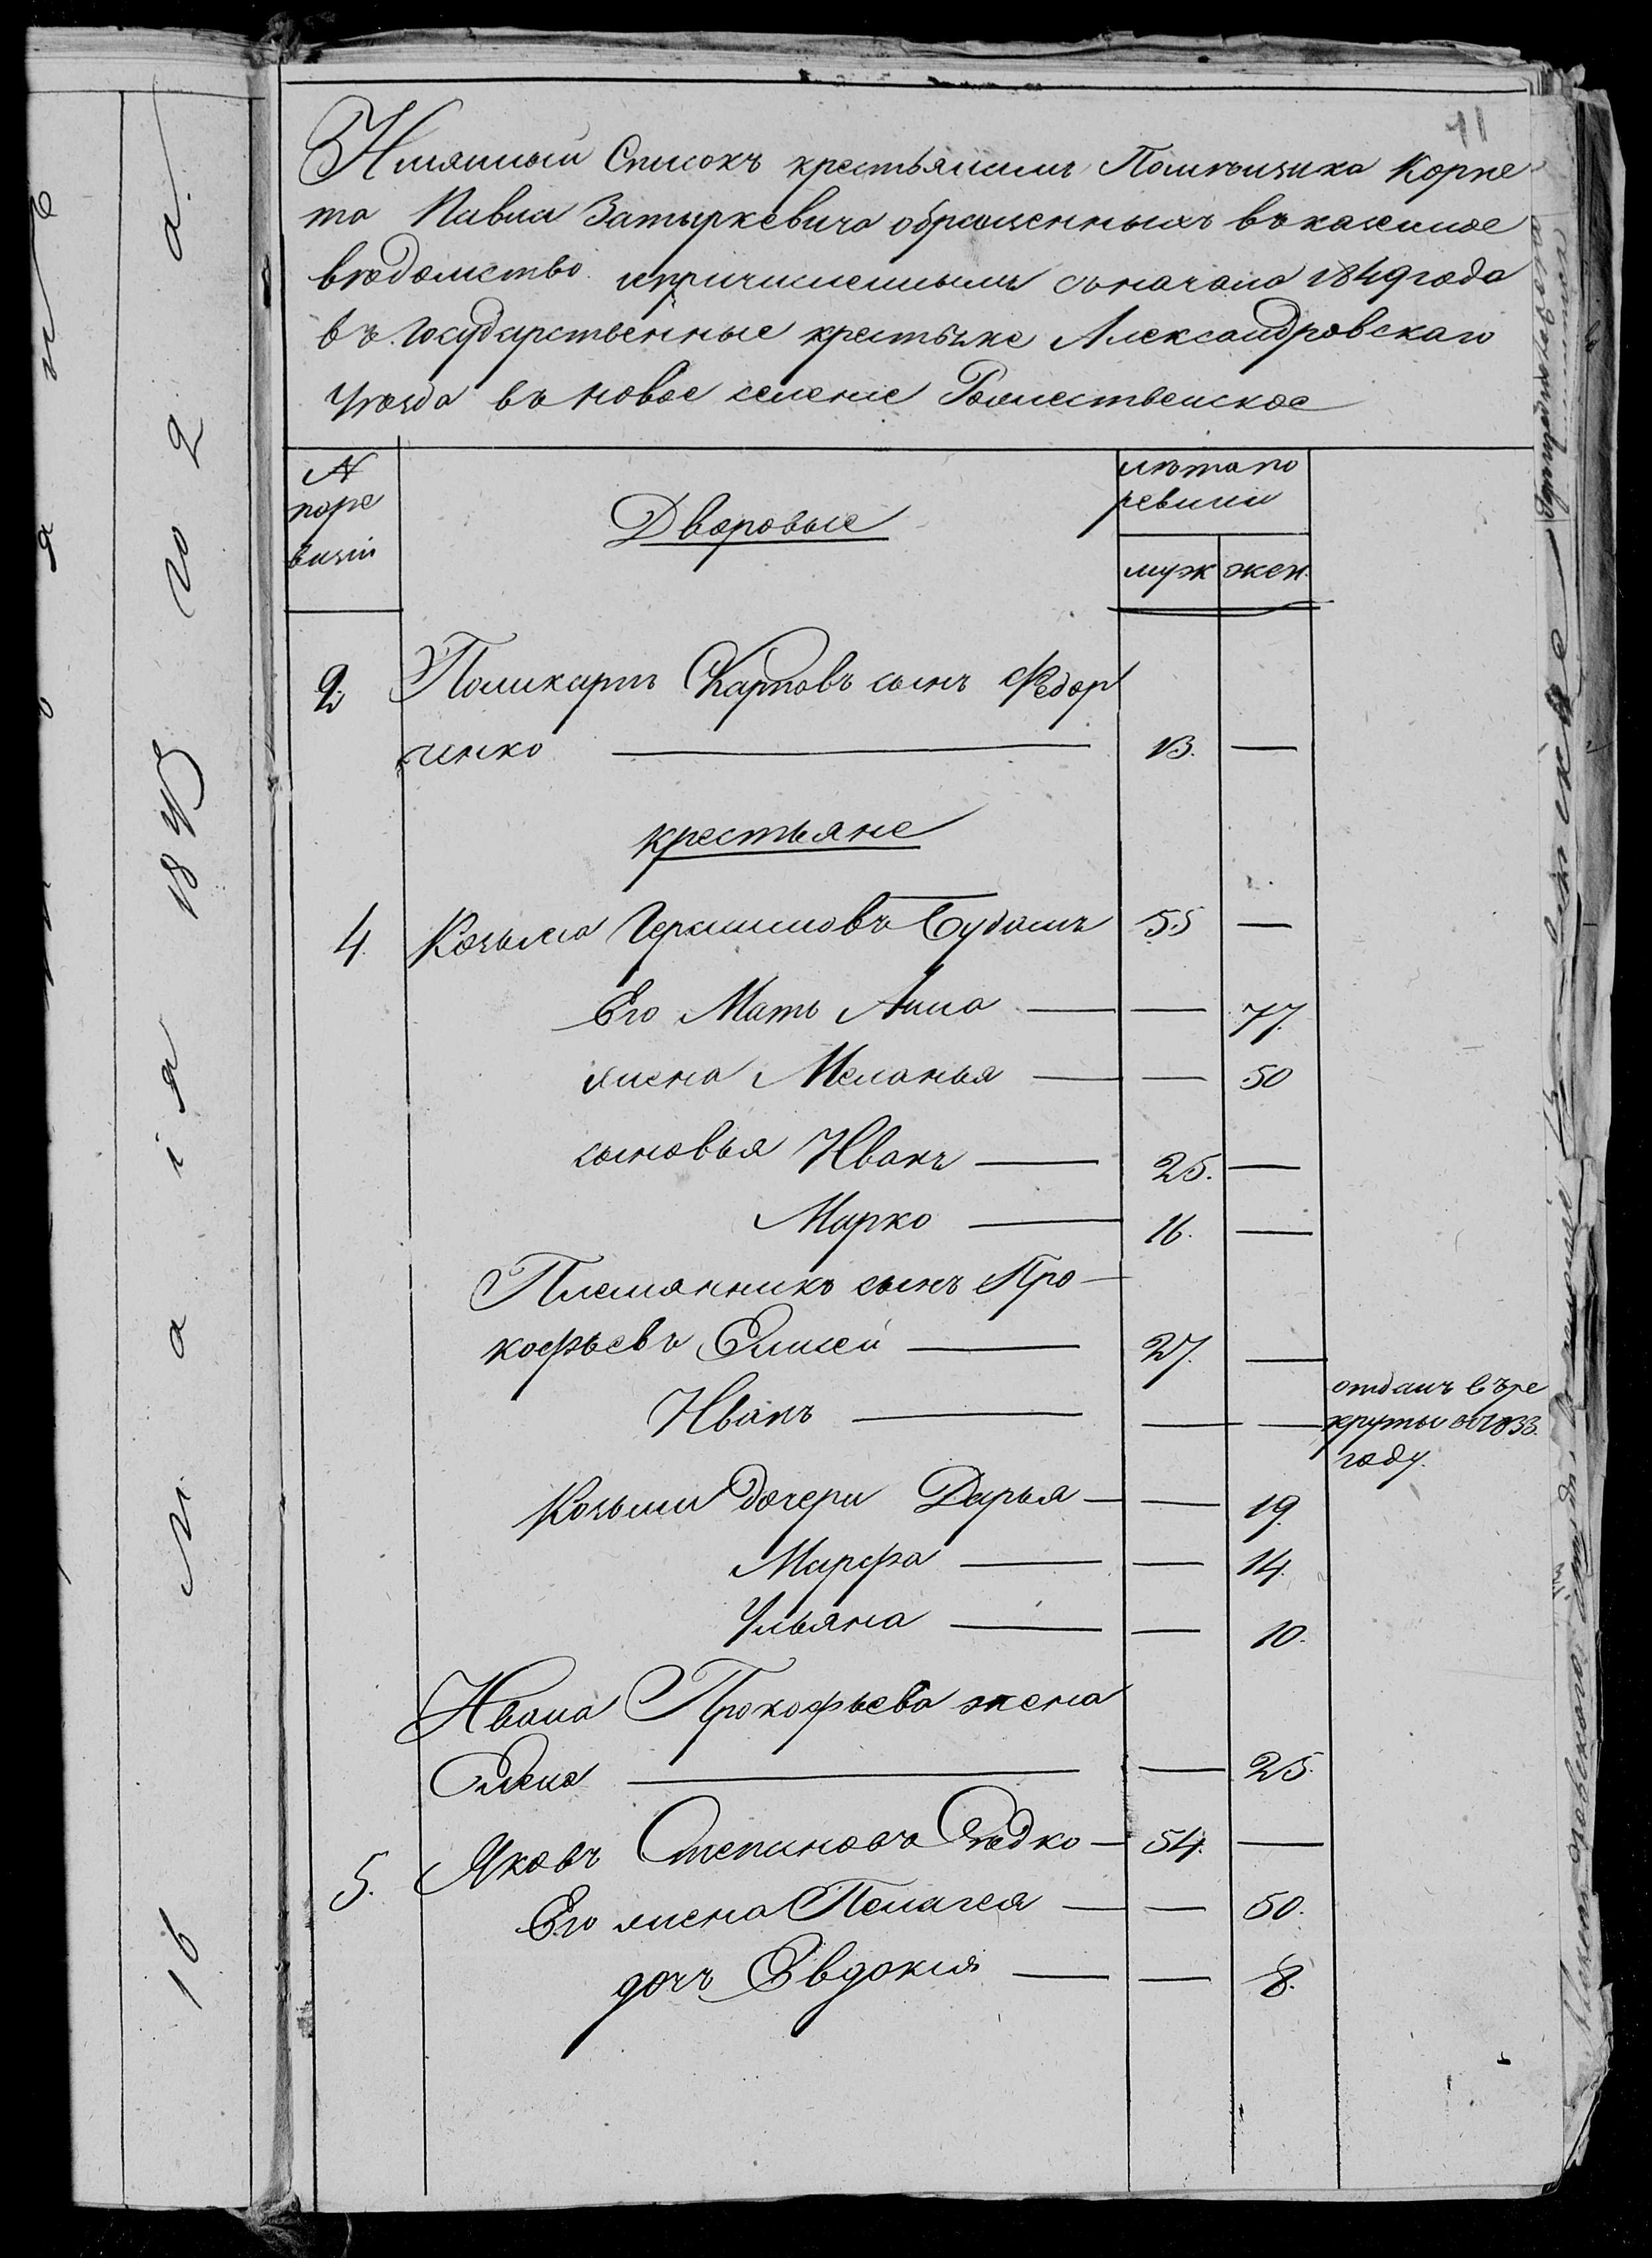 11
Имянный Списокъ крестьянамъ Помѣщика Корне
та Павла Затыркевича обращенныхъ въ казенное
вѣдомство и причисленнымъ съ начала 1849 года
въ государственные крестьяне Александровскаго
уѣзда въ новое селение Рожественское
№ поре визіи
Дворовые
лѣта по ревизіи
муж жен.
2. Поликарпъ Карповъ сынъ Федор
ченко — 13. —
крестьяне
4. Козьма Герасимовъ — 55 —
Его Мать Анна — — 77.
жена Меланья — — 50
сыновья Иванъ — 25. —
Марко — 16. —
Племянникъ сынъ Про-
кофьевъ Елисей — 27. —
Иванъ — — — отданъ въ ре
круты въ 1833.
году.
Козьмы дочери Дарья — — 19.
Марфа — — 14.
Ульяна — — 10.
Ивана Прокофьева жена
Елена — — 25.
5. Яковъ Степановъ Рѣдко — 54. —
Его жена Пелагея — — 50.
дочь Евдокия — — 8.
16 м а і я 18 г о д а.